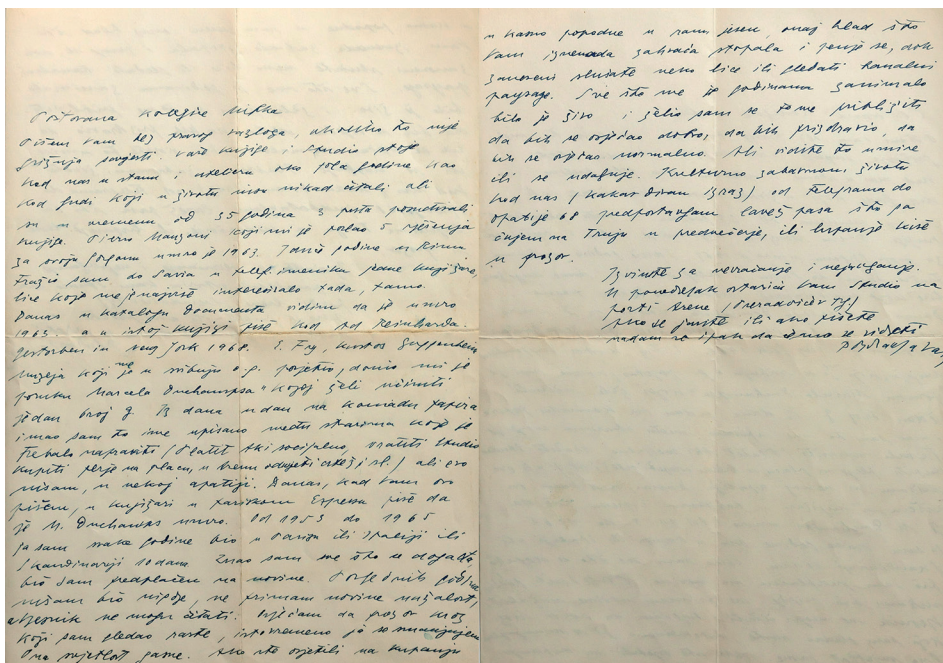 Poštovana kolegice Mifka
Pišem Vam bez pravog razloga, ukoliko to nije
grižnja savjesti. Vaše knjige i Studio stoje
kod nas u stanu i ateljeu oko pola godine kao
kod ljudi koji u životu nisu nikad čitali ali
su u vremenu od 35 godina 3 puta posuđivali
knjige. Pierro Manzoni koji mi je poslao 5 rješenja
za svoju Gorgonu umro je 1963. Iduće godine u Rimu
tražio sam do Savia u telef. imenika jedne knjižare,
lice koje me je najviše interesiralo tada, tamo.
Danas u katalogu Documenta vidim da je umro
1963. a u istoj knjizi piše kod Ad Reinhardta.
Gestorben in New York 1968. E. Fry, kustos Guggenheim
Muzeja koji me je u svibnju o.g. posjetio, donio mi je
poruku Marcela Duchampsa kojoj želi učiniti
jedan broj G. Iz dana u dan na komadu papira
imao sam to ime upisano među stvarima koje je
trebalo napraviti (Platit ski socijalno, vratiti Studio
kupiti perje na placu, u Bremen odnijeti crtež i sl.) ali evo
nisam, u nekoj apatiji. Danas, kad Vam ovo
pišem, u knjižari u pariskom Expressu piše da
je M. Duchamps umro. Od 1953 do 1965
ja sam svake godine bio u Parizu ili Italiji ili
Skandinaviji 10 dana. Znao sam sve što se događa,
bio sam predplaćen na novine. Posljednjih godina
nisam bio nigdje, ne primam novine nažalost,
a Vjesnik ne mogu čitati. Osjećam da prozor kroz
koji sam gledao raste, istovremeno ja se smanjujem
Ona svjetlost gasne. Ako ste osjetili na kupanju
u kasno popodne u ranu jesen, onaj hlad što
Vam iznenada zahvaća stopala i penje se, dok
zaneseni slušate neko lice ili gledate banalni
paysage. Sve što me je godinama zanimalo
bilo je živo i želio sam se tome približiti
da bih se osjećao dobro, da bih prizdravio, da
bih se osjećao normalno. Ali vidite to umire
ili se udaljuje. Kulturno zabavnom životu
kod nas (kakav divan izraz) od Telegrama do
Opatije 68 predpostavljam lavež pasa što ga
čujem na Trnju u predvečerje, ili lupanje kiše
u prozor.
Izvinite za nevraćanje i nejavljanje.
U ponedjeljak ostavit ću Vam Studio na
porti Irene (Preradovićev trg)
Ako se ljutite ili ako pišete
nadam se ipak da ćemo se vidjeti